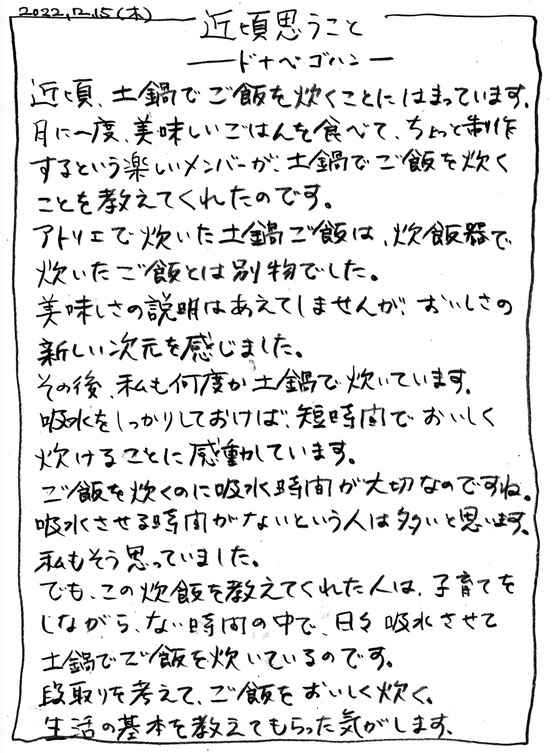 2022,12,15(木)
近頃思うこと
ードナベゴハンー
近頃、土鍋でご飯を炊くことにはまっています。
月に一度、美味しいごはんを食べて、ちょっと制作
するという楽しいメンバーが、土鍋でご飯を炊く
ことを教えてくれたのです。
アトリエで炊いた土鍋ご飯は、炊飯器で
炊いたご飯とは別物でした。
美味しさの説明はあえてしませんが、おいしさの
新しい次元を感じました。
その後、私も何度か土鍋で炊いています。
吸水をしっかりしておけば、短時間でおいしく
炊けることに感動しています。
ご飯を炊くのに吸水時間が大切なのですね。
吸水させる時間がないという人は多いと思います。
私もそう思っていました。
でも、この炊飯を教えてくれた人は、子育てを
しながら、ない時間の中で、日々吸水させて
土鍋でご飯を炊いているのです。
段取りを考えて、ご飯をおいしく炊く。
生活の基本を教えてもらった気がします。